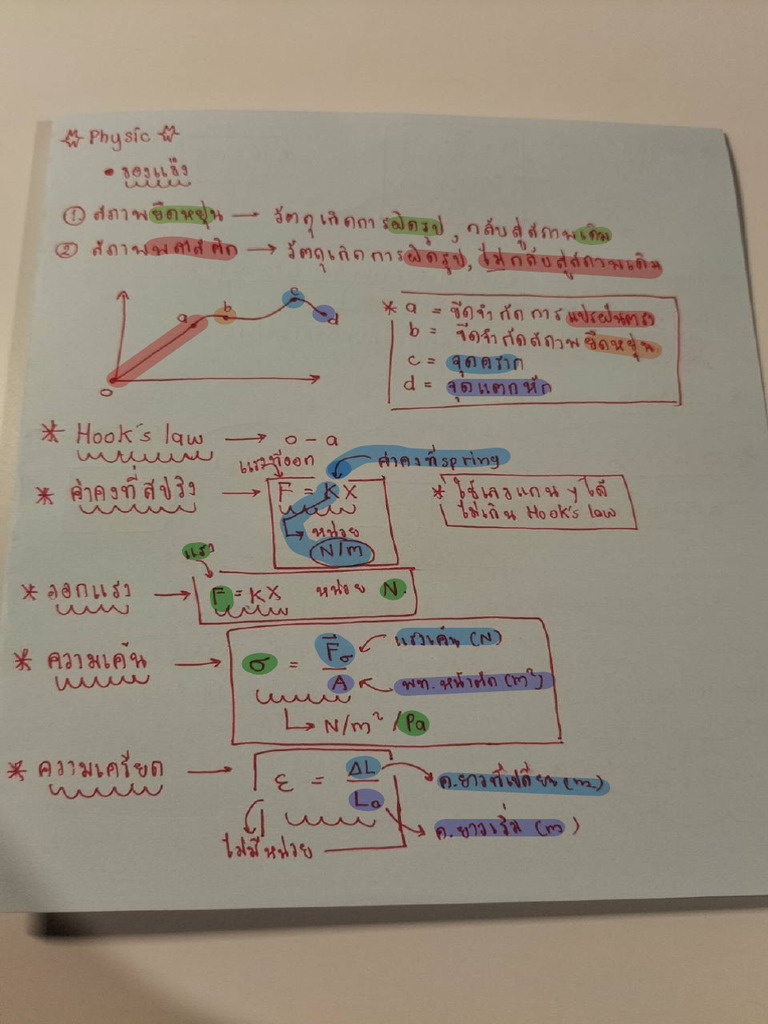 Physic
• ของแข็ง
① สภาพยืดหยุ่น → วัตถุเกิดการผิดรูป, กลับสู่สภาพเดิม
② สภาพพลาสติก → วัตถุเกิดการผิดรูป, ไม่กลับสู่สภาพเดิม
a b c d
o
* a = ขีดจำกัดการแปรผันตรง
b = ขีดจำกัดสภาพยืดหยุ่น
c = จุดคราก
d = จุดแตกหัก
* Hook's law → o - a
แรงที่ออก
ค่าคงที่spring
* ค่าคงที่สปริง → F = KX
หน่วย
N/m
* ใช้เลขแกน y ได้
ไม่เกิน Hook's law
แรง
* ออกแรง → F = KX หน่วย N
* ความเค้น → σ = F⃗σ / A
แรงเค้น (N)
พท.หน้าตัด (m²)
N/m² / Pa
* ความเครียด → ε = ΔL / L₀
ค.ยาวที่เปลี่ยน (m)
ค.ยาวเริ่ม (m)
ไม่มีหน่วย